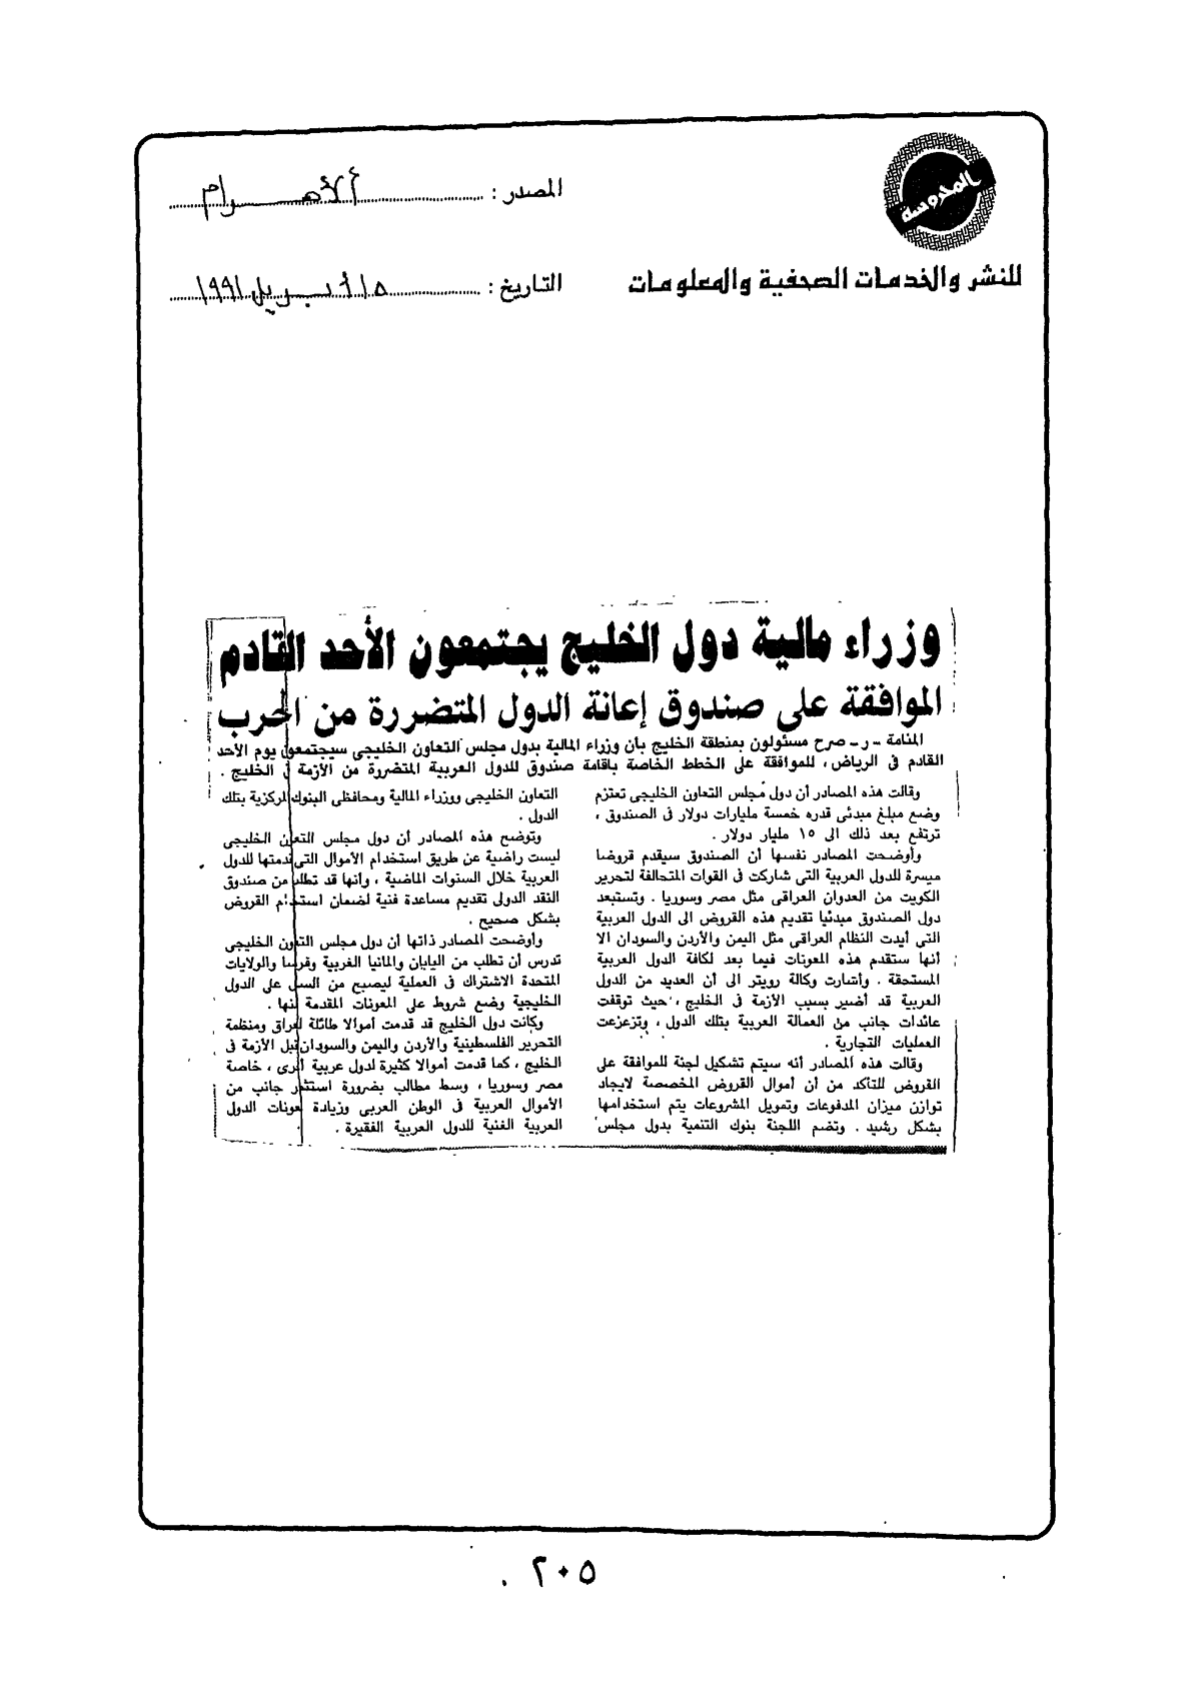 المحروسة
للنشر والخدمات الصحفية والمعلومات
المصدر : الأهـــرام
التاريخ : ١٥ أبريل ١٩٩١
وزراء مالية دول الخليج يجتمعون الأحد القادم
الموافقة على صندوق إعانة الدول المتضررة من الحرب
المنامة - ر - صرح مسئولون بمنطقة الخليج بأن وزراء المالية بدول مجلس التعاون الخليجى سيجتمعون يوم الأحد
القادم فى الرياض ، للموافقة على الخطط الخاصة باقامة صندوق للدول العربية المتضررة من الأزمة فى الخليج .
وقالت هذه المصادر أن دول مجلس التعاون الخليجى تعتزم
وضع مبلغ مبدئى قدره خمسة مليارات دولار فى الصندوق ،
ترتفع بعد ذلك الى ١٥ مليار دولار .
وأوضحت المصادر نفسها أن الصندوق سيقدم قروضا
ميسرة للدول العربية التى شاركت فى القوات المتحالفة لتحرير
الكويت من العدوان العراقى مثل مصر وسوريا . وتستبعد
دول الصندوق مبدئيا تقديم هذه القروض الى الدول العربية
التى أيدت النظام العراقى مثل اليمن والأردن والسودان الا
أنها ستقدم هذه المعونات فيما بعد لكافة الدول العربية
المستحقة . وأشارت وكالة رويتر الى أن العديد من الدول
العربية قد أضير بسبب الأزمة فى الخليج ، حيث توقفت
عائدات جانب من العمالة العربية بتلك الدول ، وتزعزعت
العمليات التجارية .
وقالت هذه المصادر أنه سيتم تشكيل لجنة للموافقة على
القروض للتأكد من أن أموال القروض المخصصة لايجاد
توازن ميزان المدفوعات وتمويل المشروعات يتم استخدامها
بشكل رشيد . وتضم اللجنة بنوك التنمية بدول مجلس
التعاون الخليجى ووزراء المالية ومحافظى البنوك المركزية بتلك
الدول .
وتوضح هذه المصادر أن دول مجلس التعاون الخليجى
ليست راضية عن طريق استخدام الأموال التى قدمتها للدول
العربية خلال السنوات الماضية ، وأنها قد تطلب من صندوق
النقد الدولى تقديم مساعدة فنية لضمان استخدام القروض
بشكل صحيح .
وأوضحت المصادر ذاتها أن دول مجلس التعاون الخليجى
تدرس أن تطلب من اليابان والمانيا الغربية وفرنسا والولايات
المتحدة الاشتراك فى العملية ليصبح من السهل على الدول
الخليجية وضع شروط على المعونات المقدمة منها .
وكانت دول الخليج قد قدمت أموالا طائلة للعراق ومنظمة
التحرير الفلسطينية والأردن واليمن والسودان قبل الأزمة فى
الخليج ، كما قدمت أموالا كثيرة لدول عربية أخرى ، خاصة
مصر وسوريا ، وسط مطالب بضرورة استثمار جانب من
الأموال العربية فى الوطن العربى وزيادة معونات الدول
العربية الغنية للدول العربية الفقيرة .
٢٠٥